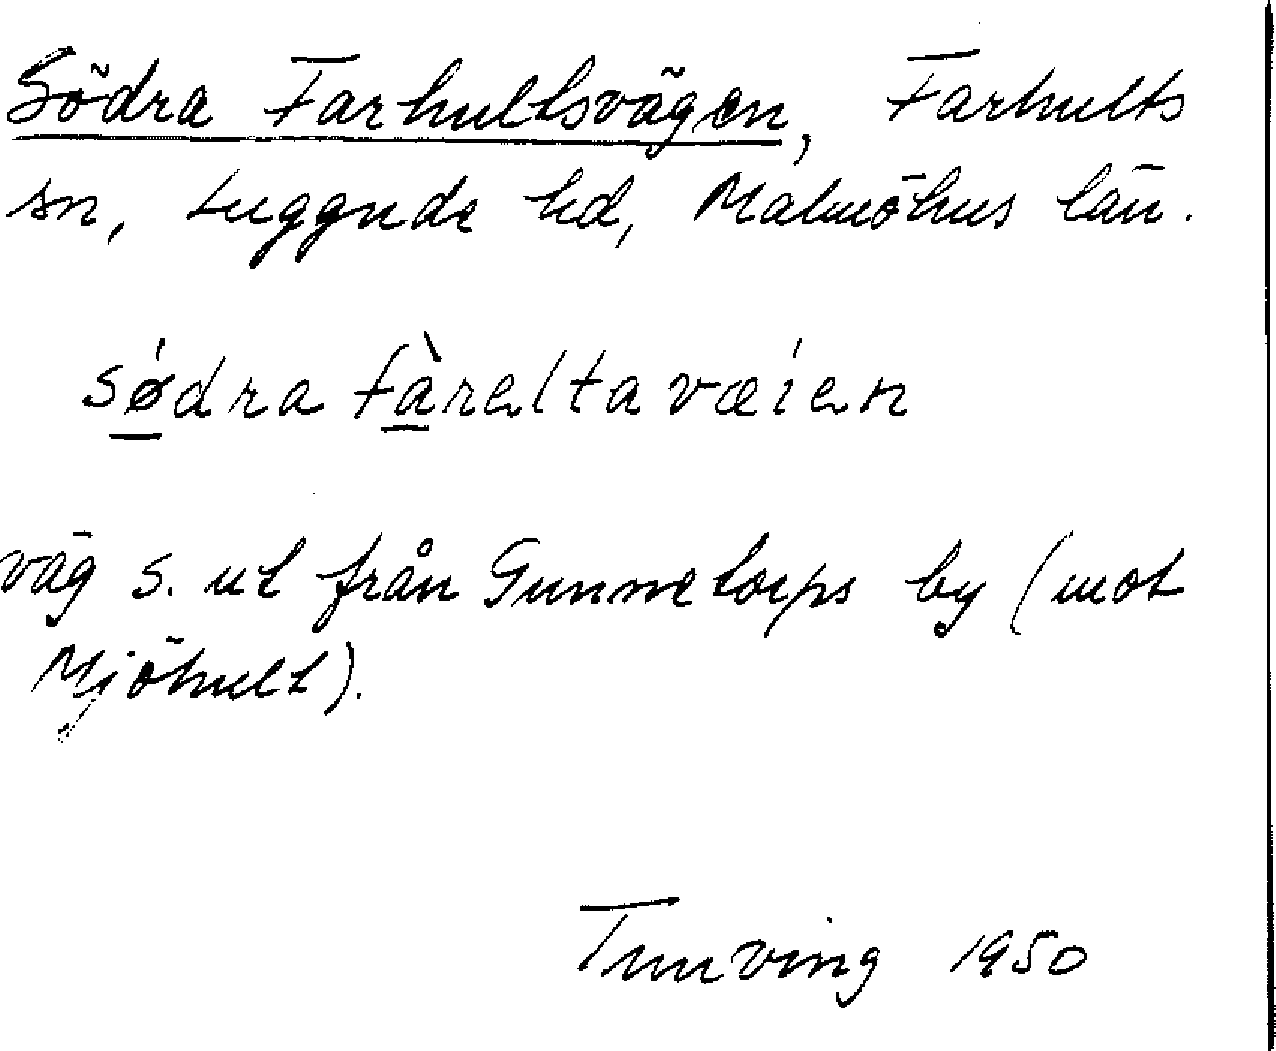 Södra Farhultsvägen, Farhults
sn, Luggude hd, Malmöhus län.
sǿ̱dra fà̱reltavæíen
väg s. ut från Gunnetorps by (mot
Mjöhult).
Tunving 1950